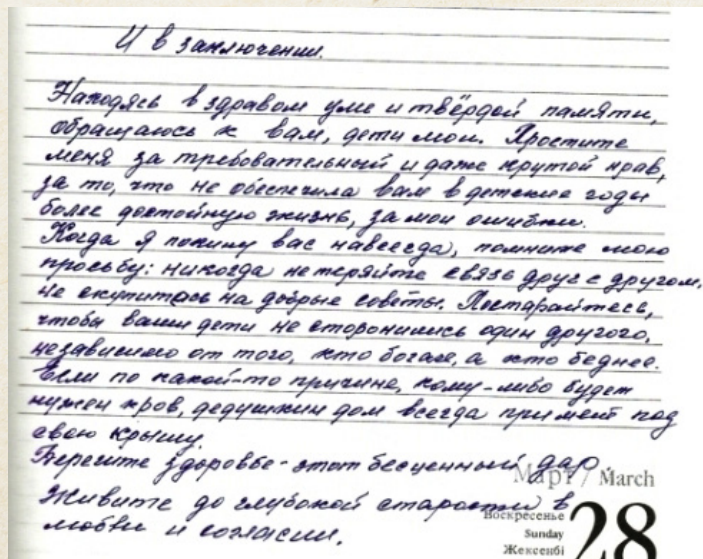 И в заключении.
Находясь в здравом уме и твёрдой памяти,
обращаюсь к вам, дети мои. Простите
меня за требовательный и даже крутой нрав,
за то, что не обеспечила вам в детские годы
более достойную жизнь, за мои ошибки.
Когда я покину вас навсегда, помните мою
просьбу: никогда не теряйте связь друг с другом,
не скупитесь на добрые советы. Постарайтесь,
чтобы ваши дети не сторонились один другого,
независимо от того, кто богаче, а кто беднее.
Если по какой-то причине, кому-либо будет
нужен кров, дедушкин дом всегда примет под
свою крышу.
Берегите здоровье - этот бесценный дар
Живите до глубокой старости в
любви и согласии.
Март / March
Воскресенье
Sunday
Жексенбі
28